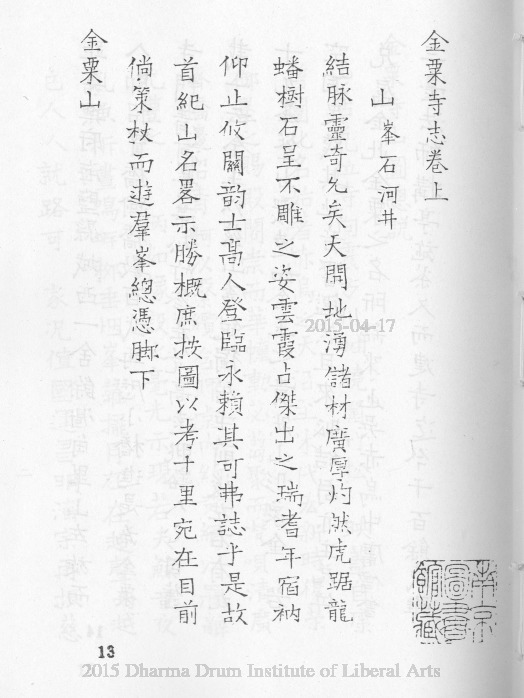 金粟寺志卷上
山峯石河井
結脉靈奇允矣天開地湧儲材廣厚灼然虎踞龍
蟠樹石呈不雕之姿雲霞占傑出之瑞耆年宿衲
仰止攸關韵士高人登臨永賴其可弗誌乎是故
首紀山名畧示勝概庶按圖以考十里宛在目前
倘策杖而遊羣峯總憑脚下
金粟山
2015-04-17
南京
圖書
館藏
13
2015 Dharma Drum Institute of Liberal Arts